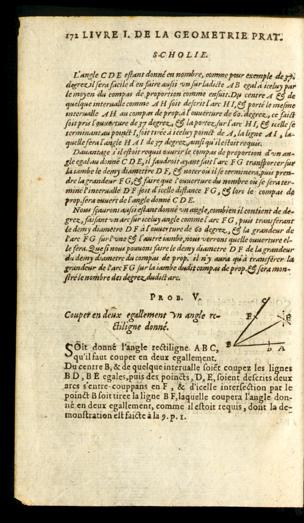 172 LIVRE I. DE LA GEOMETRIE PRAT.
SCHOLIE.
L'angle CDE estant donné en nombre, comme pour exemple de 37.
degrez, il sera facile d'en faire aussi vn sur ladicte AB egal à iceluy par
le moyen du compas de proportion comme ensuit. Du centre A & de
quelque interualle comme AH soit descrit l'arc HI, & porté le mesme
interualle AH au compas de prop. à l'ouuerture de 60. degrez, ce faict
soit pris l'ouuerture de 37 degrez, & la portez, sur l'arc HI, & icelle se
terminant au poinct I, soit tirée à iceluy poinct de A, la ligne AI, la-
quelle fera l'angle HAI de 37 degrez, ainsi qu'il estoit requis.
Dauantage s'il estoit requis ouurir le compas de proportion d'vn an-
gle egal au donné CDE, il faudroit ayant fait l'arc FG transporter sur
la iambe le demy diametre DF, & noter où il se terminera, puis pren-
dre la grandeur FG, & faire que l'ouuerture du nombre où se sera ter-
miné l'interualle DF soit d'icelle distance FG, & lors le compas de
prop. sera ouuert de l'angle donné CDE.
Nous sçaurons aussi estant donné vn angle, combien il contient de de-
grez, faisant vn arc sur iceluy angle comme l'arc FG, puis transferant
le demy diametre DF à l'ouuerture de 60 degrez, & la grandeur de
l'arc FG sur l'vne & l'autre iambe, nous verrons quelle ouuerture el-
le sera. Que si nous pouuons le demy diametre DF de la grandeur
du demy diametre du compas de prop. il n'y aura qu'à transferer la
grandeur de l'arc FG sur la iambe dudit compas de prop. & sera mon-
stré le nombre des degrez, dudict arc.
PROB. V.
Couper en deux egallement vn angle re-
ctiligne donné.
C
E
F
B
D
A
SOit donné l'angle rectiligne ABC,
qu'il faut couper en deux egallement.
Du centre B, & de quelque interualle soiẽt coupez les lignes
BD, BE egales, puis des poincts, D, E, soient descrits deux
arcs s'entre-couppans en F, & d'icelle intersection par le
poinct B soit tiree la ligne BF, laquelle coupera l'angle don-
né en deux egallement, comme il estoit requis, dont la de-
monstration est faicte à la 9. p. 1.